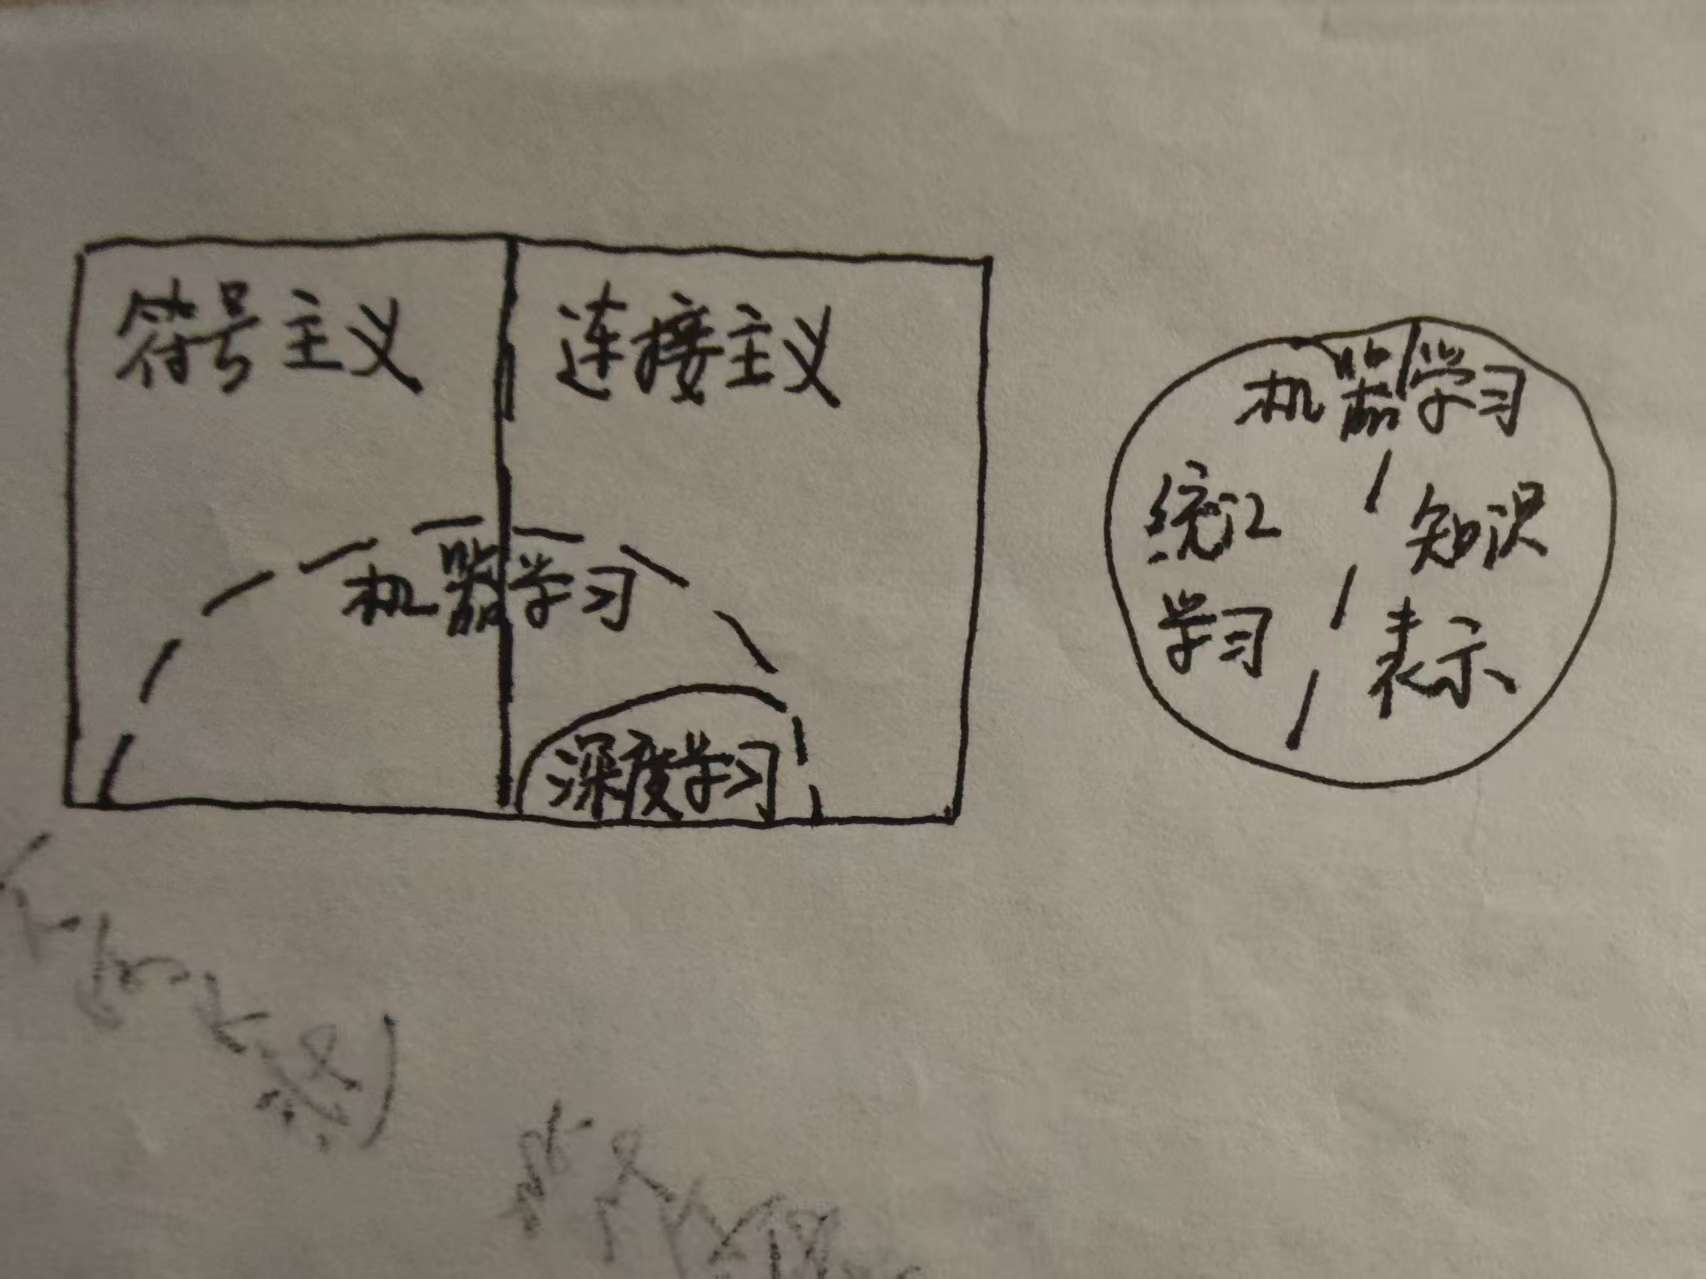 符号主义
连接主义
机器学习
深度学习
机器学习
统计
学习
知识
表示